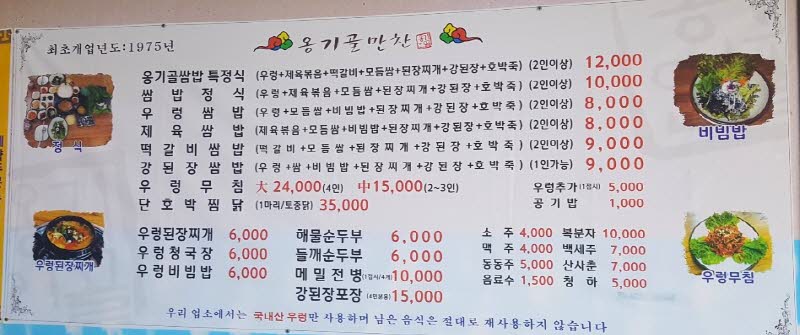 최초개업년도:1975년
옹기골만찬
옹기골쌈밥 특정식 (우렁+제육볶음+떡갈비+모듬쌈+된장찌개+강된장+호박죽) (2인이상) 12,000
쌈밥정식 (우렁+제육볶음+모듬쌈+된장찌개+강된장+호박죽) (2인이상) 10,000
우렁쌈밥 (우렁+모듬쌈+비빔밥+된장찌개+강된장+호박죽) (2인이상) 8,000
제육쌈밥 (제육볶음+모듬쌈+비빔밥+된장찌개+강된장+호박죽) (2인이상) 8,000
떡갈비쌈밥 (떡갈비+모듬쌈+된장찌개+강된장+호박죽) (2인이상) 9,000
강된장쌈밥 (우렁+쌈+비빔밥+된장찌개+강된장+호박죽) (1인가능) 9,000
우렁무침 大 24,000(4인) 中 15,000(2~3인)
단호박찜닭 (1마리/토종닭) 35,000
우렁추가(1접시) 5,000
공기밥 1,000
우렁된장찌개 6,000
우렁청국장 6,000
우렁비빔밥 6,000
해물순두부 6,000
들깨순두부 6,000
메밀전병 (1접시/4개) 10,000
강된장포장 15,000
소주 4,000 복분자 10,000
맥주 4,000 백세주 7,000
동동주 5,000 산사춘 7,000
음료수 1,500 청하 5,000
정식
우렁된장찌개
비빔밥
우렁무침
우리 업소에서는 국내산 우렁만 사용하며 남은 음식은 절대로 재사용하지 않습니다